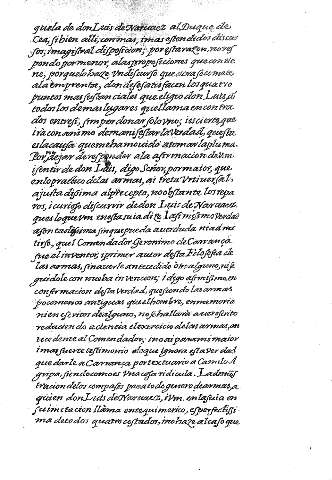 quela de don Luis de Naruaez al Duque de
Cea, si bien alli, con mas, i mas estendidos discur
sos, i magistral disposicion; por esta razon, no res
pondo por menor, a las proposiciones que contie
ne, porque lo haze un discurso que aora se mete
a la emprenta, donde se satisfacen los quatro
puntos mas esenciales que eligio don Luis, di
todos los demas lugares que llama encontra
dos entre si, sin perdonar solo uno; i es cierto, que
ira con animo de manifestar la Verdad, que esta
es la causa que me ha movido a tomar la pluma.
Por dejar de responder a la afirmacion de
sentir de don Luis, digo Señor, por maior, que
en lo practico de las armas, ai treta Universal,
ajustadisima al precepto, no obstante los repa
ros, i curioso discurrir de don Luis de Naruaez
ques lo que Vm en esta via dize La fin es mo Verdad
a son                sin que pueda auer duda ni ad mi
tirse, que el Comendador Geronimo de Carrança
fue al inventor, i primer autor desta Filosofia de
las armas, sin auerle antecedido otro alguno, ni se
guidole con nueba invencion; i digo afirmismo, en
confirmacion desta Verdad, que siendo las armas
poco menos antiguas que el hombre, en memoria
ni en escritor de alguno, no se hallaria auer escrito
reducien do a ciencia el exercicio de las armas, an
tecedente al Comendador; i no ai para mi maior
i mas fuerte testimonio e lo que ignora esta verdad
que darle a Carrança, por textuario a Camilo A
gripa, siendo como es Una cosa ridicula. La demos
tracion de los compases, para todo genero de armas, a
quien don Luis de Naruaez, i Vm. en la suia en
su imitacion llama entequimerico, es perfectissi
ma de todos quatro costados, i no haze al caso que